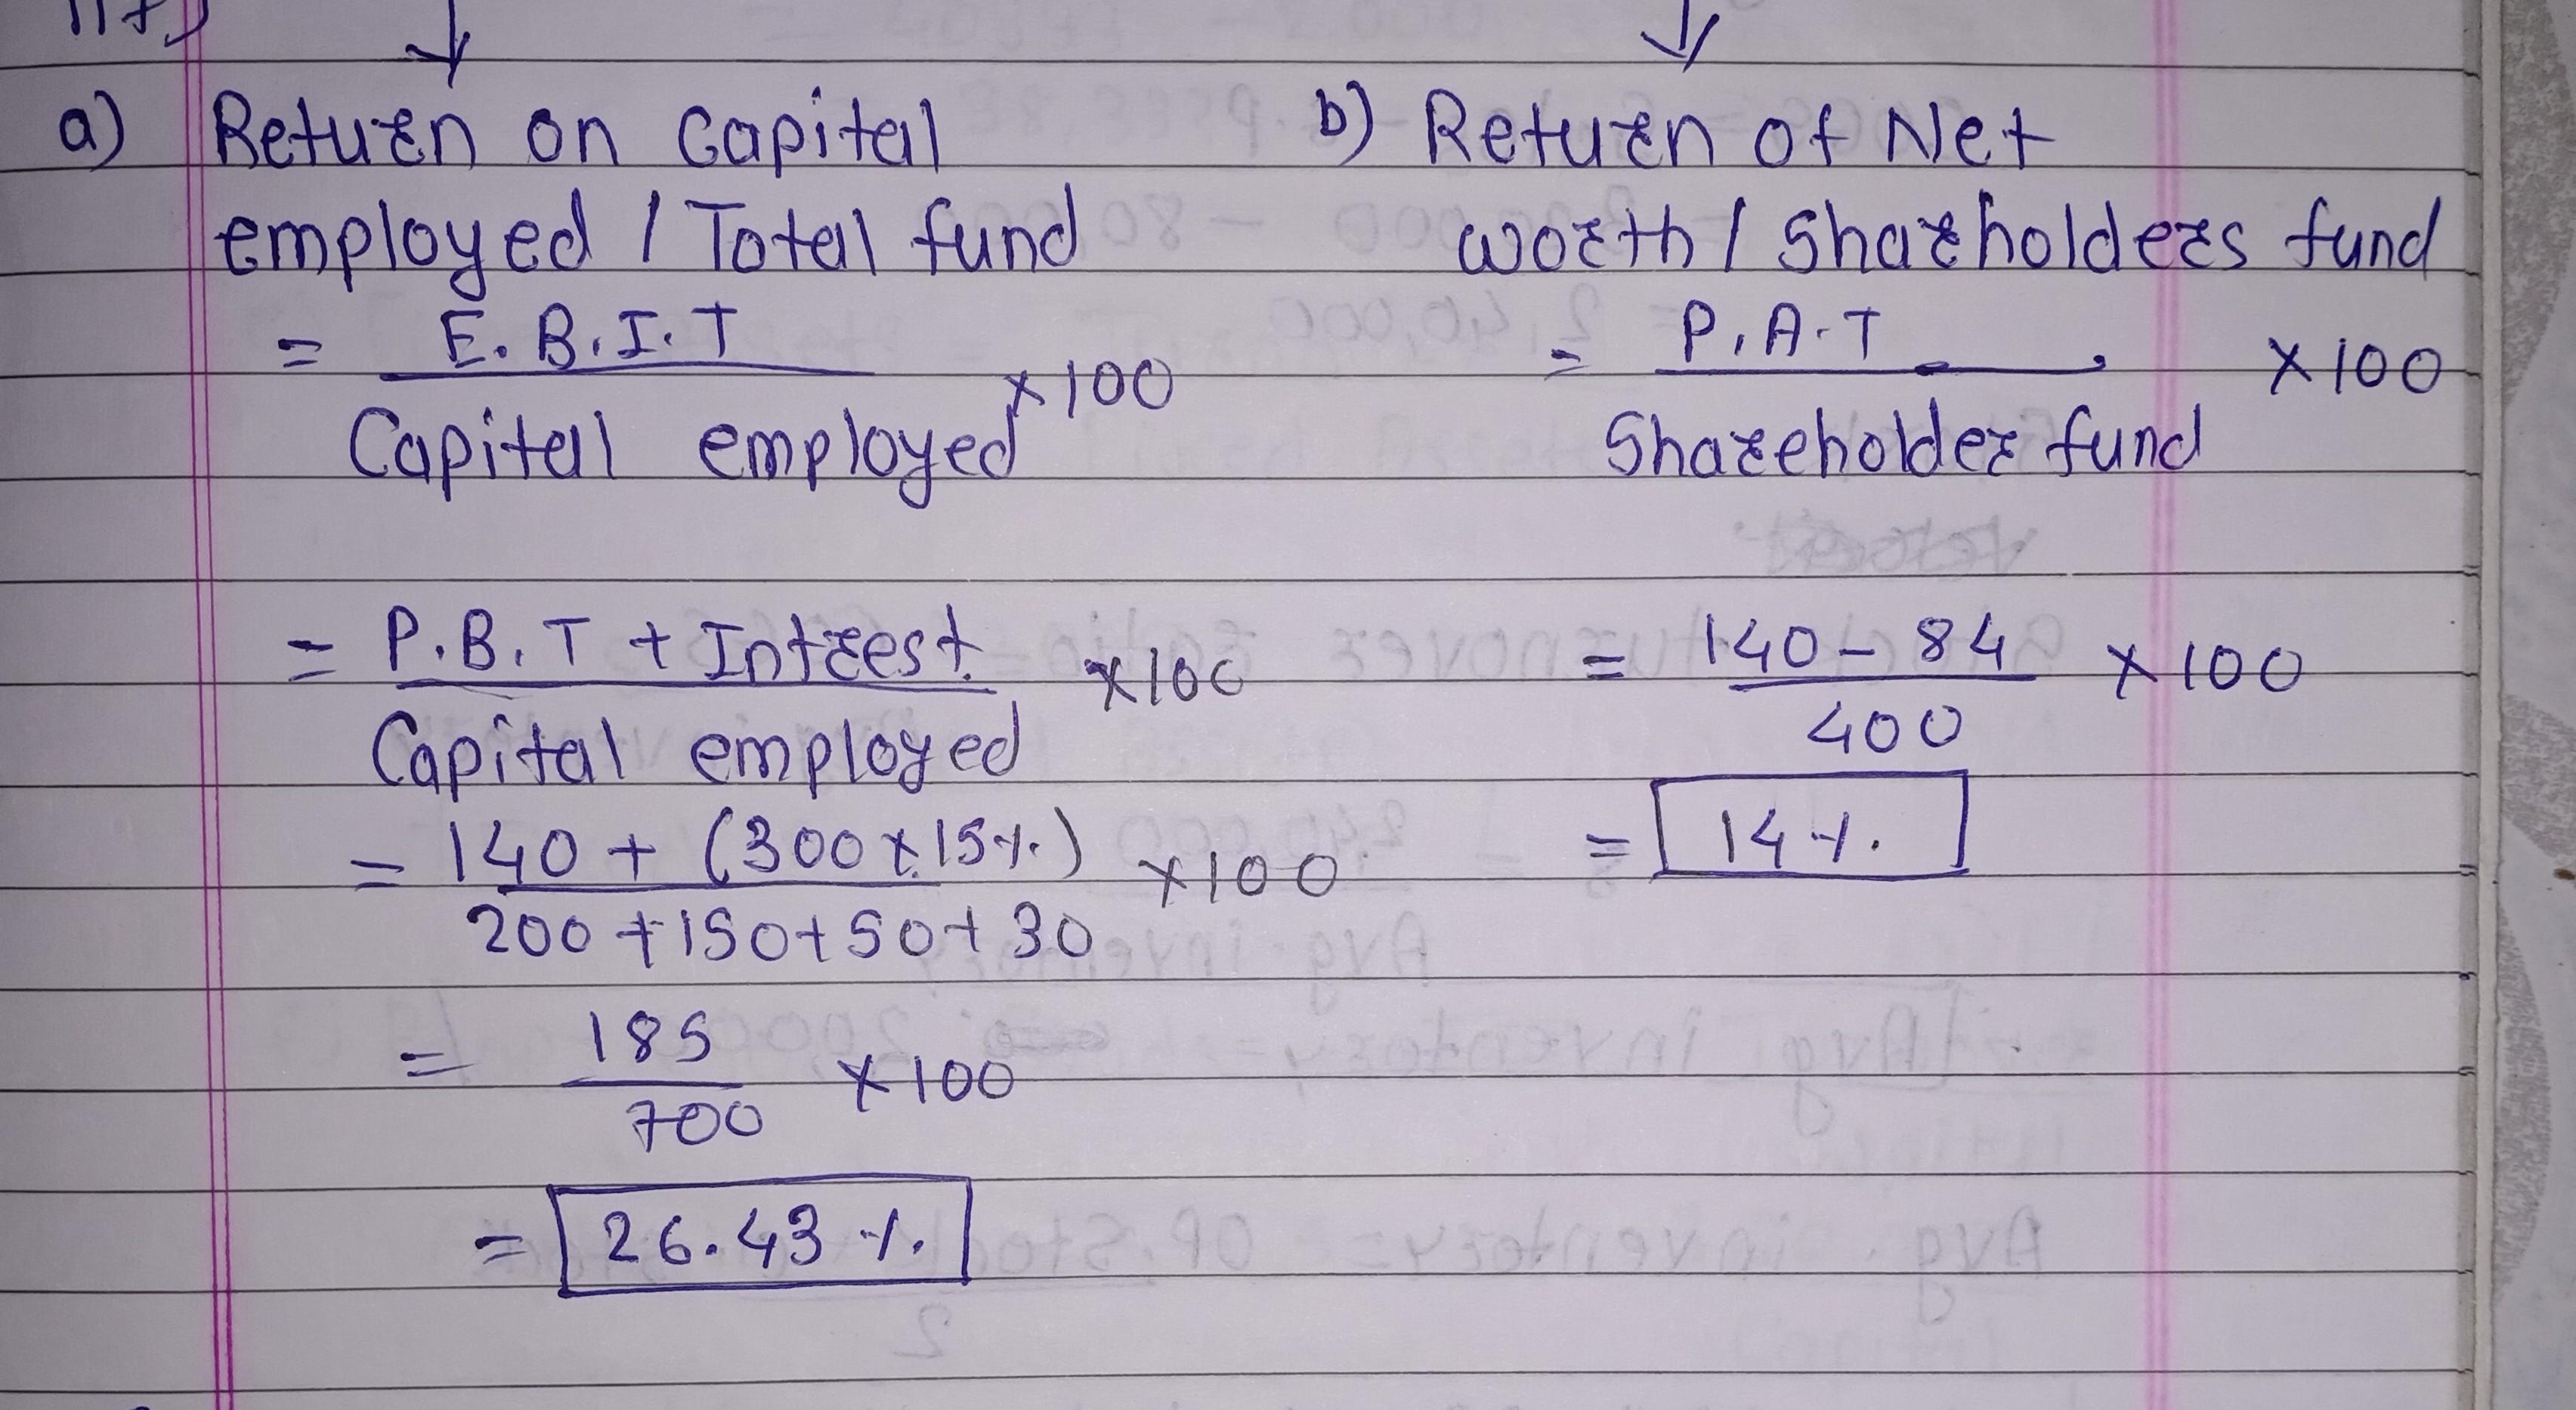 a) Return on Capital
employed / Total fund
= E.B.I.T
Capital employed
x100
= P.B.T + Intrest.
Capital employed
x100
= 140 + (300 x 15%)
200 + 150 + 50 + 30
x100
= 185
700
x100
= 26.43 %
b) Return of Net
worth / Sharholders fund
= P.A.T
Shareholder fund
x100
= 140 - 84
400
x100
= 14 %